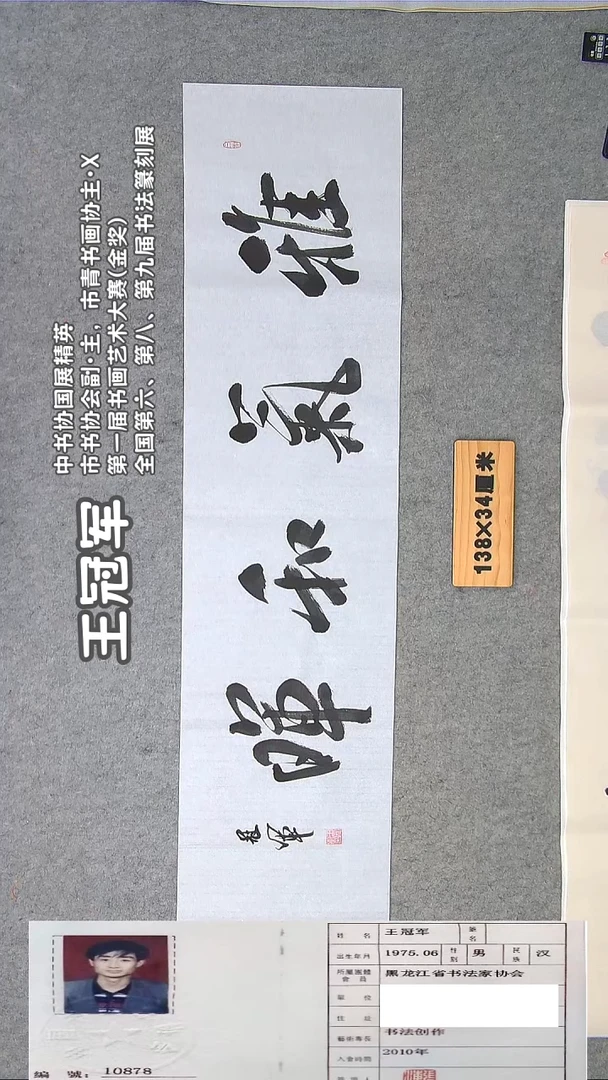 中书协国展精英
市书协会副·主，市青书画协主·X
第一届书画艺术大赛(金奖)
全国第六、第八、第九届书法篆刻展
王冠军
雅氣和暉
冠軍
138×34厘米
姓名 王冠军 筆名
出生年月 1975.06 性别 男 民族 汉
所屬團體會員 黑龙江省书法家协会
單位
住址
藝術專長 书法创作
入會時間 2010年
編號：10878